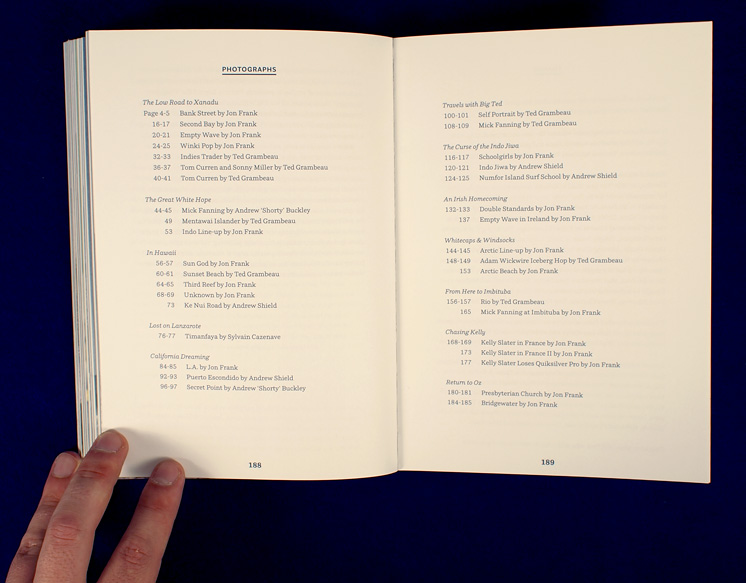 PHOTOGRAPHS
The Low Road to Xanadu
Page 4-5 Bank Street by Jon Frank
16-17 Second Bay by Jon Frank
20-21 Empty Wave by Jon Frank
24-25 Winki Pop by Jon Frank
32-33 Indies Trader by Ted Grambeau
36-37 Tom Curren and Sonny Miller by Ted Grambeau
40-41 Tom Curren by Ted Grambeau
The Great White Hope
44-45 Mick Fanning by Andrew 'Shorty' Buckley
49 Mentawai Islander by Ted Grambeau
53 Indo Line-up by Jon Frank
In Hawaii
56-57 Sun God by Jon Frank
60-61 Sunset Beach by Ted Grambeau
64-65 Third Reef by Jon Frank
68-69 Unknown by Jon Frank
73 Ke Nui Road by Andrew Shield
Lost on Lanzarote
76-77 Timanfaya by Sylvain Cazenave
California Dreaming
84-85 L.A. by Jon Frank
92-93 Puerto Escondido by Andrew Shield
96-97 Secret Point by Andrew "Shorty" Buckley
188
Travels with Big Ted
100-101 Self Portrait by Ted Grambeau
108-109 Mick Fanning by Ted Grambeau
The Curse of the Indo Jiwa
116-117 Schoolgirls by Jon Frank
120-121 Indo Jiwa by Andrew Shield
124-125 Numfor Island Surf School by Andrew Shield
An Irish Homecoming
132-133 Double Standards by Jon Frank
137 Empty Wave in Ireland by Jon Frank
Whitecaps & Windsocks
144-145 Arctic Line-up by Jon Frank
148-149 Adam Wickwire Iceberg Hop by Ted Grambeau
153 Arctic Beach by Jon Frank
From Here to Imbituba
156-157 Rio by Ted Grambeau
165 Mick Fanning at Imbituba by Jon Frank
Chasing Kelly
168-169 Kelly Slater in France by Jon Frank
173 Kelly Slater in France II by Jon Frank
177 Kelly Slater Loses Quiksilver Pro by Jon Frank
Return to Oz
180-181 Presbyterian Church by Jon Frank
184-185 Bridgewater by Jon Frank
189